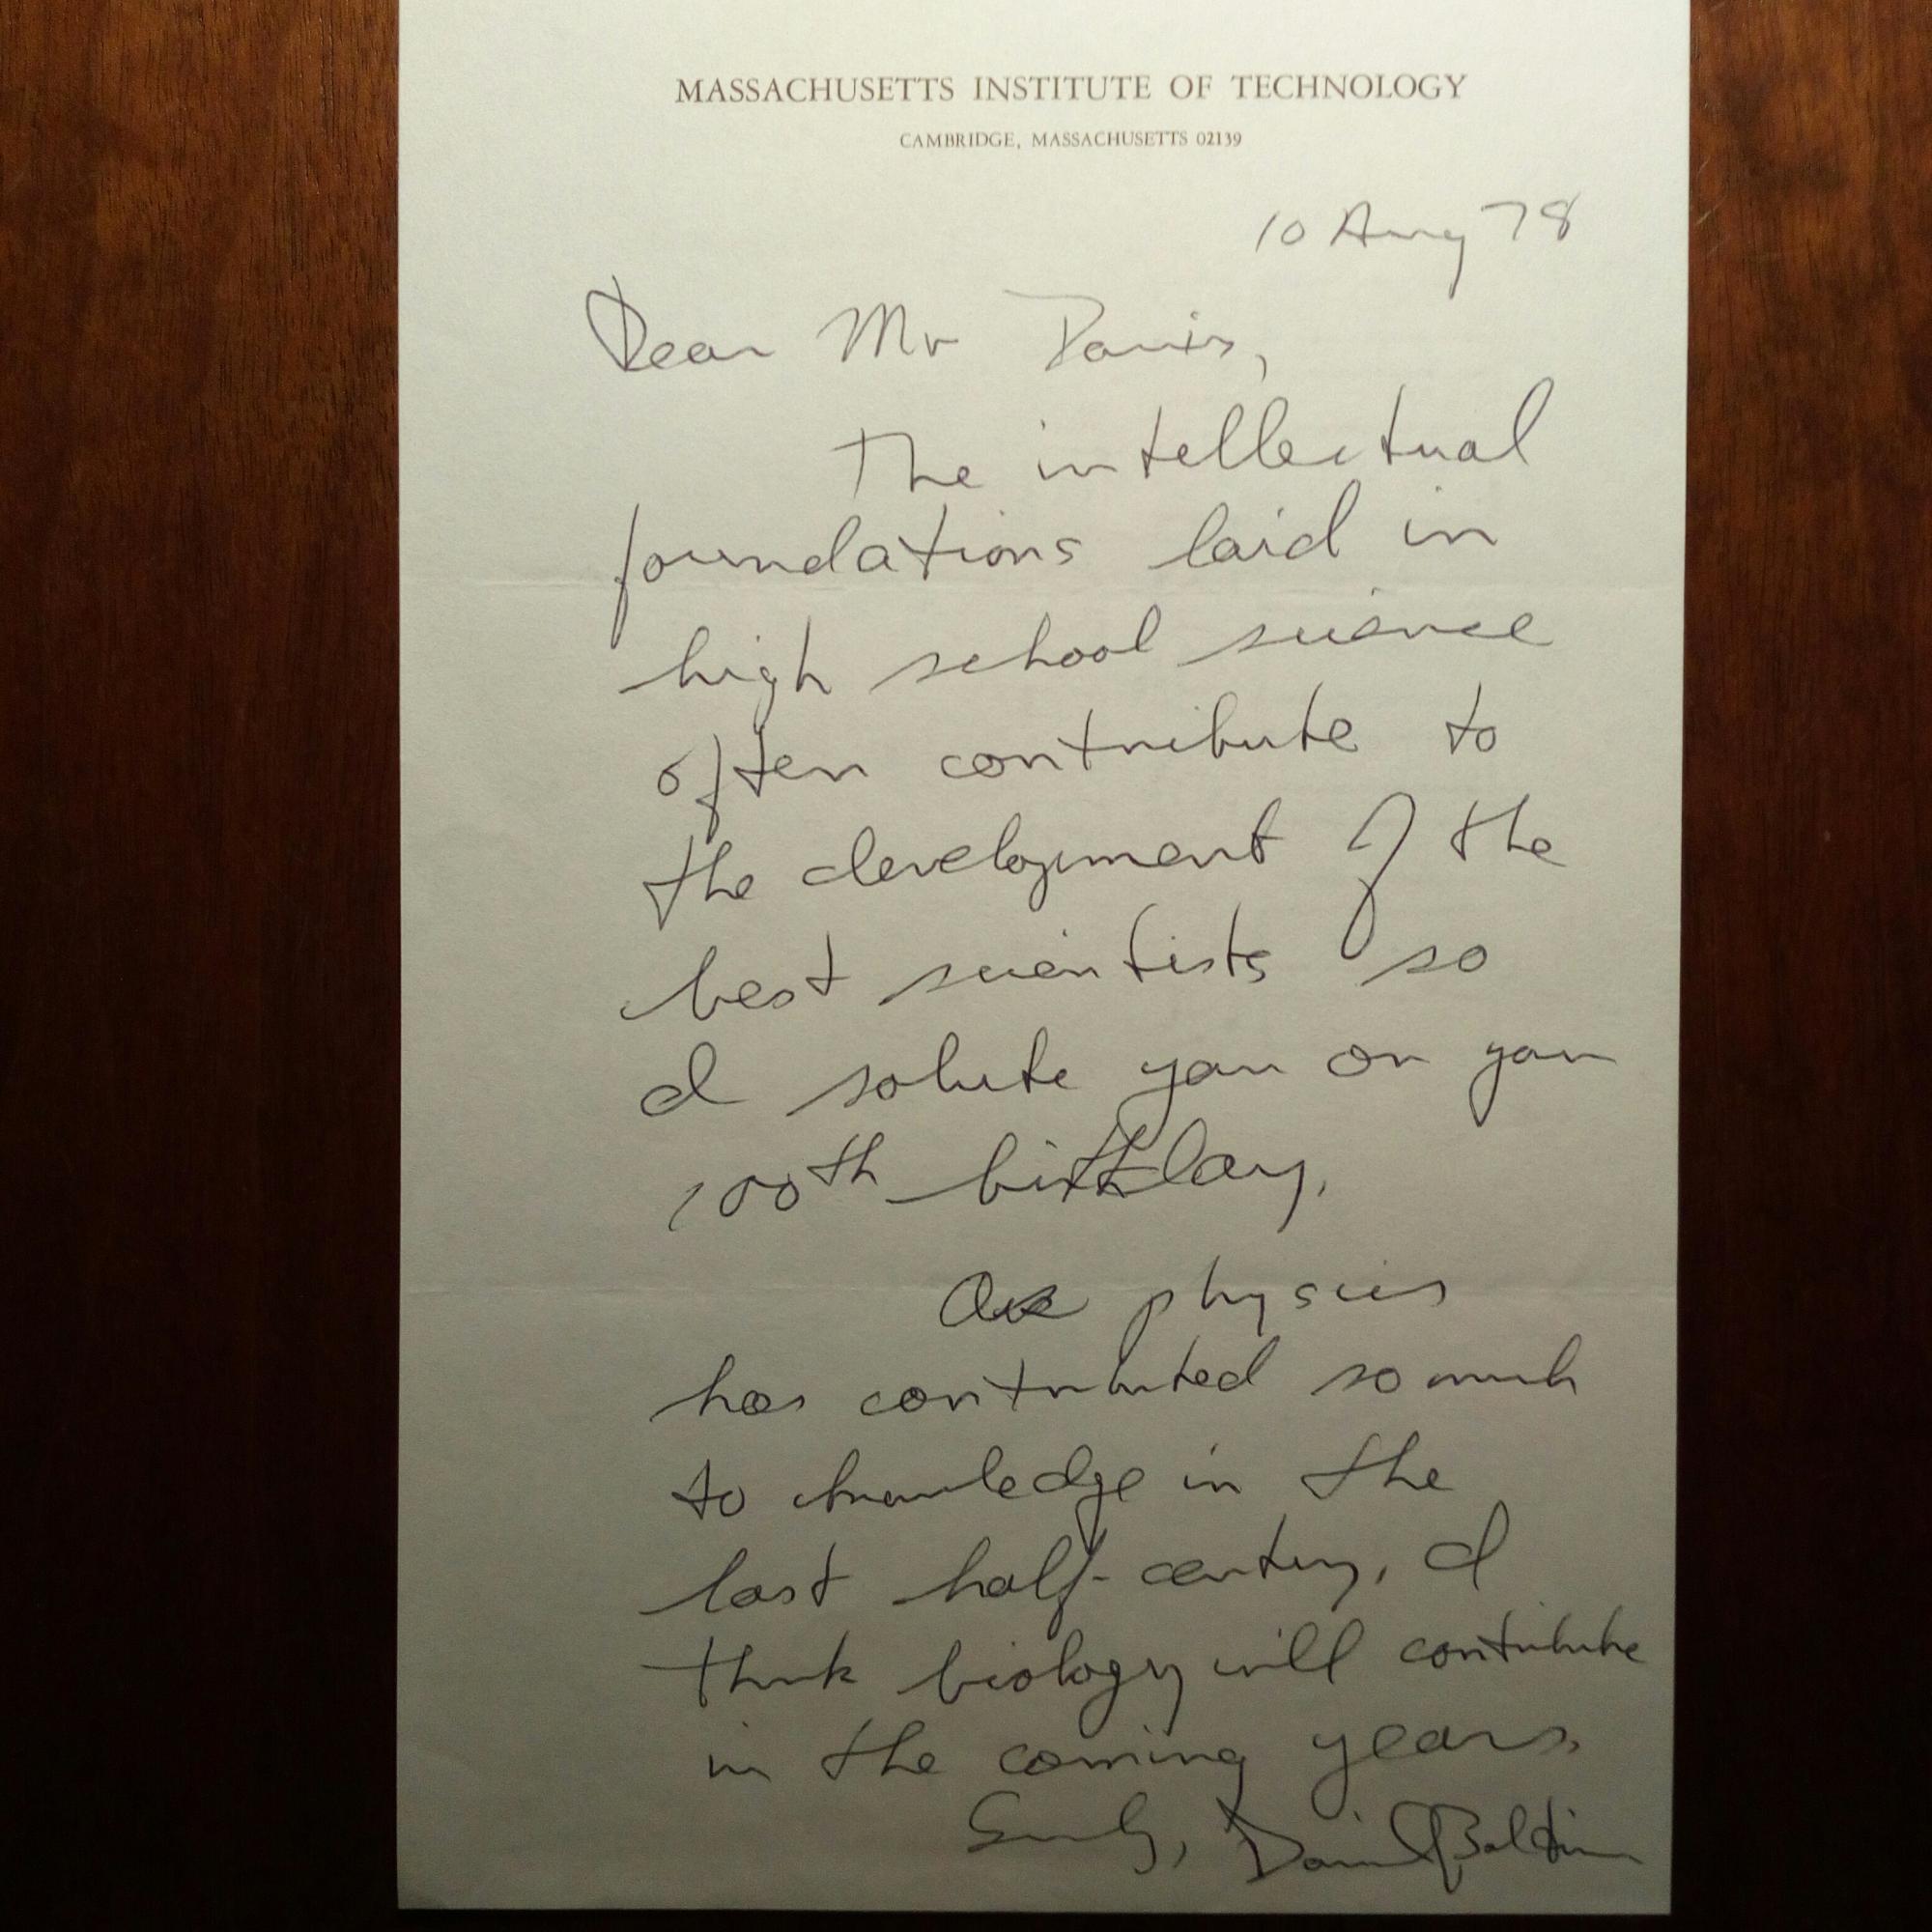 MASSACHUSETTS INSTITUTE OF TECHNOLOGY
CAMBRIDGE, MASSACHUSETTS 02139
10 Aug 78
Dear Mr Davis,
The intellectual
foundations laid in
high school science
often contribute to
the development of the
best scientists so
I salute you on your
100th birthday.
As physics
has contributed so much
to knowledge in the
last half-century, I
think biology will contribute
in the coming years.
Sincerely, David Baltimore